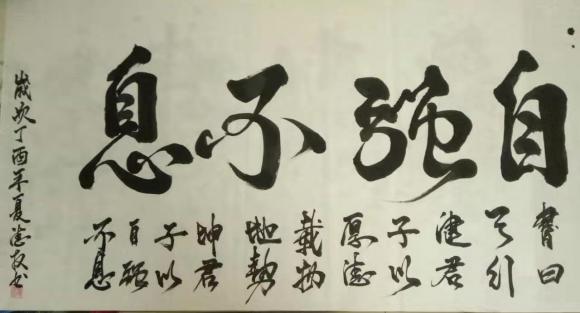 自强不息
書曰
天行
健君
子以
厚德
載物
地勢
坤君
子以
自强
不息
歲次丁酉年夏德书